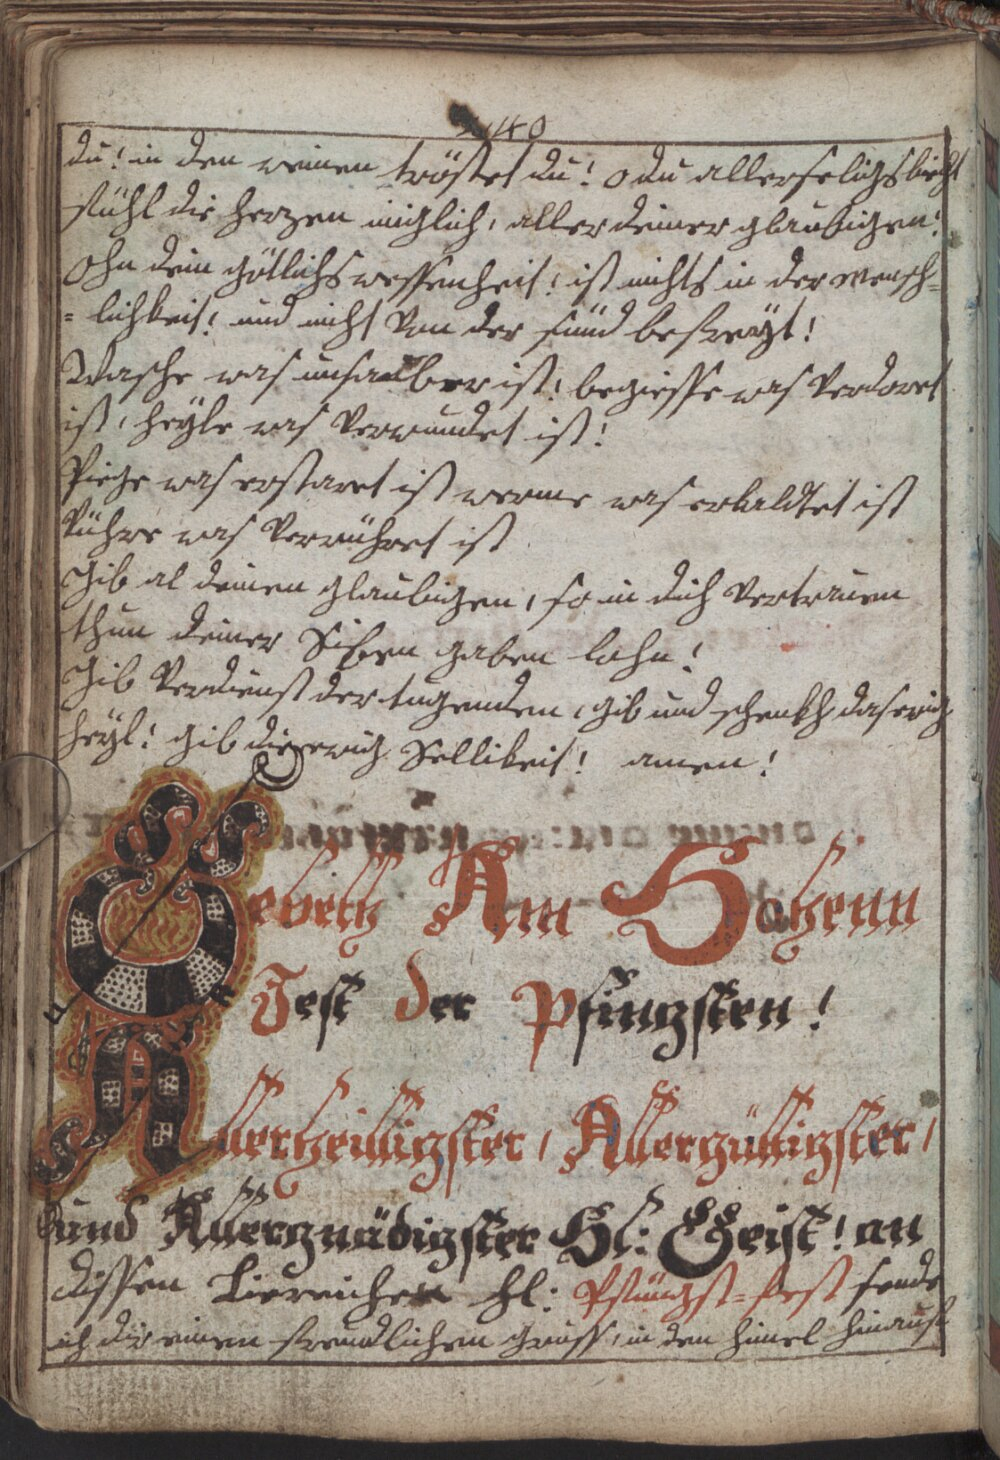 240
du! in den weinen tröstet du! o du allerseligs liecht
fühl die herzen iniglich, aller deiner glaubigen!
Ohn dein götlichs wessenheit! ist nichts in der mensch=
= lichkeit! und nicht Von der sünd befreyt!
Wasche was unsauber ist! begiesse was Verdoret
ist, heyle was Verwundet ist!
Piege was erstaret ist werme was erkaldtet ist
Führe was Verirühret ist
Gib al deinen glaubigen, so in dich Vertrauen
thun deiner Siben gaben lohn!
Gib Verdienst der tugenden, gib und schenkh das ewig
heyl! gib die ewig Sellikeit! amen!
Gebett Am Hohenn
Fest der Pfingsten!
Allerheilligster, Allergüttigster,
und Allergnädigster Hl: Geist! an
dissen Liereichen hl: Pfüngst=fest sende
ich dir einen freundlichen gruss, in den himel hinauf